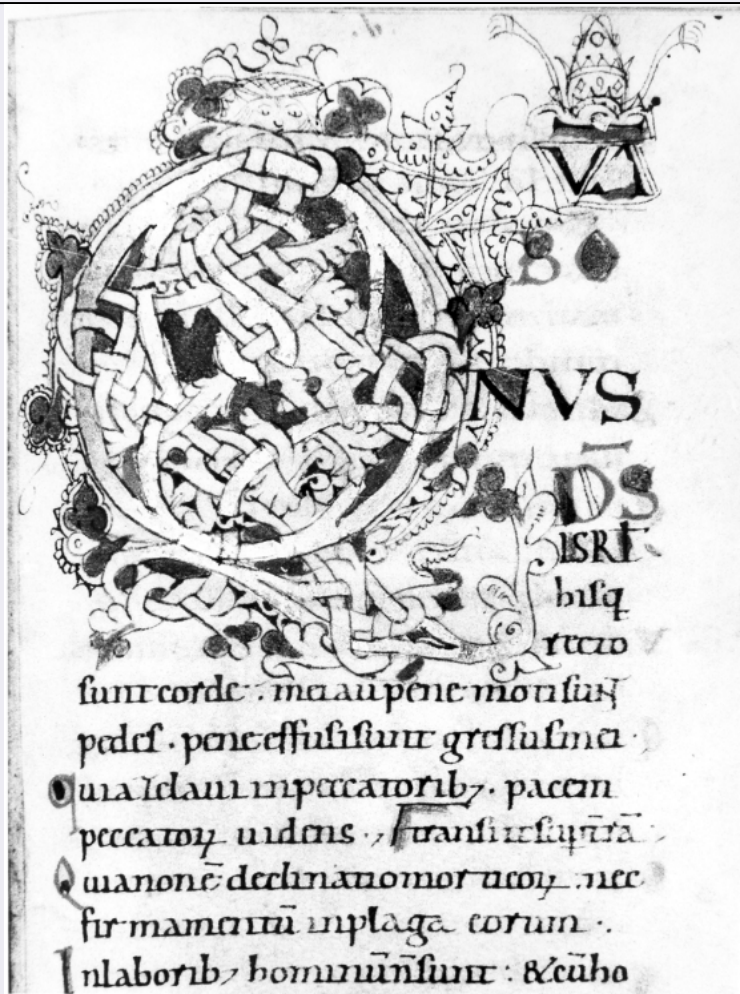 Q
VĀ
BO
NVS
D̄S
ISRL
hisq
recto
sunt corde . mei au pene moti sunt
pedes . pene effusi sunt gressus mei .
quia zelaui in peccatorib; . pacem
peccatoꝝ uidens .
Quia non ē declinatio morti eoꝝ . nec
firmamentū in plaga eorum .
In laborib; hominū n̄ sunt : & cū ho